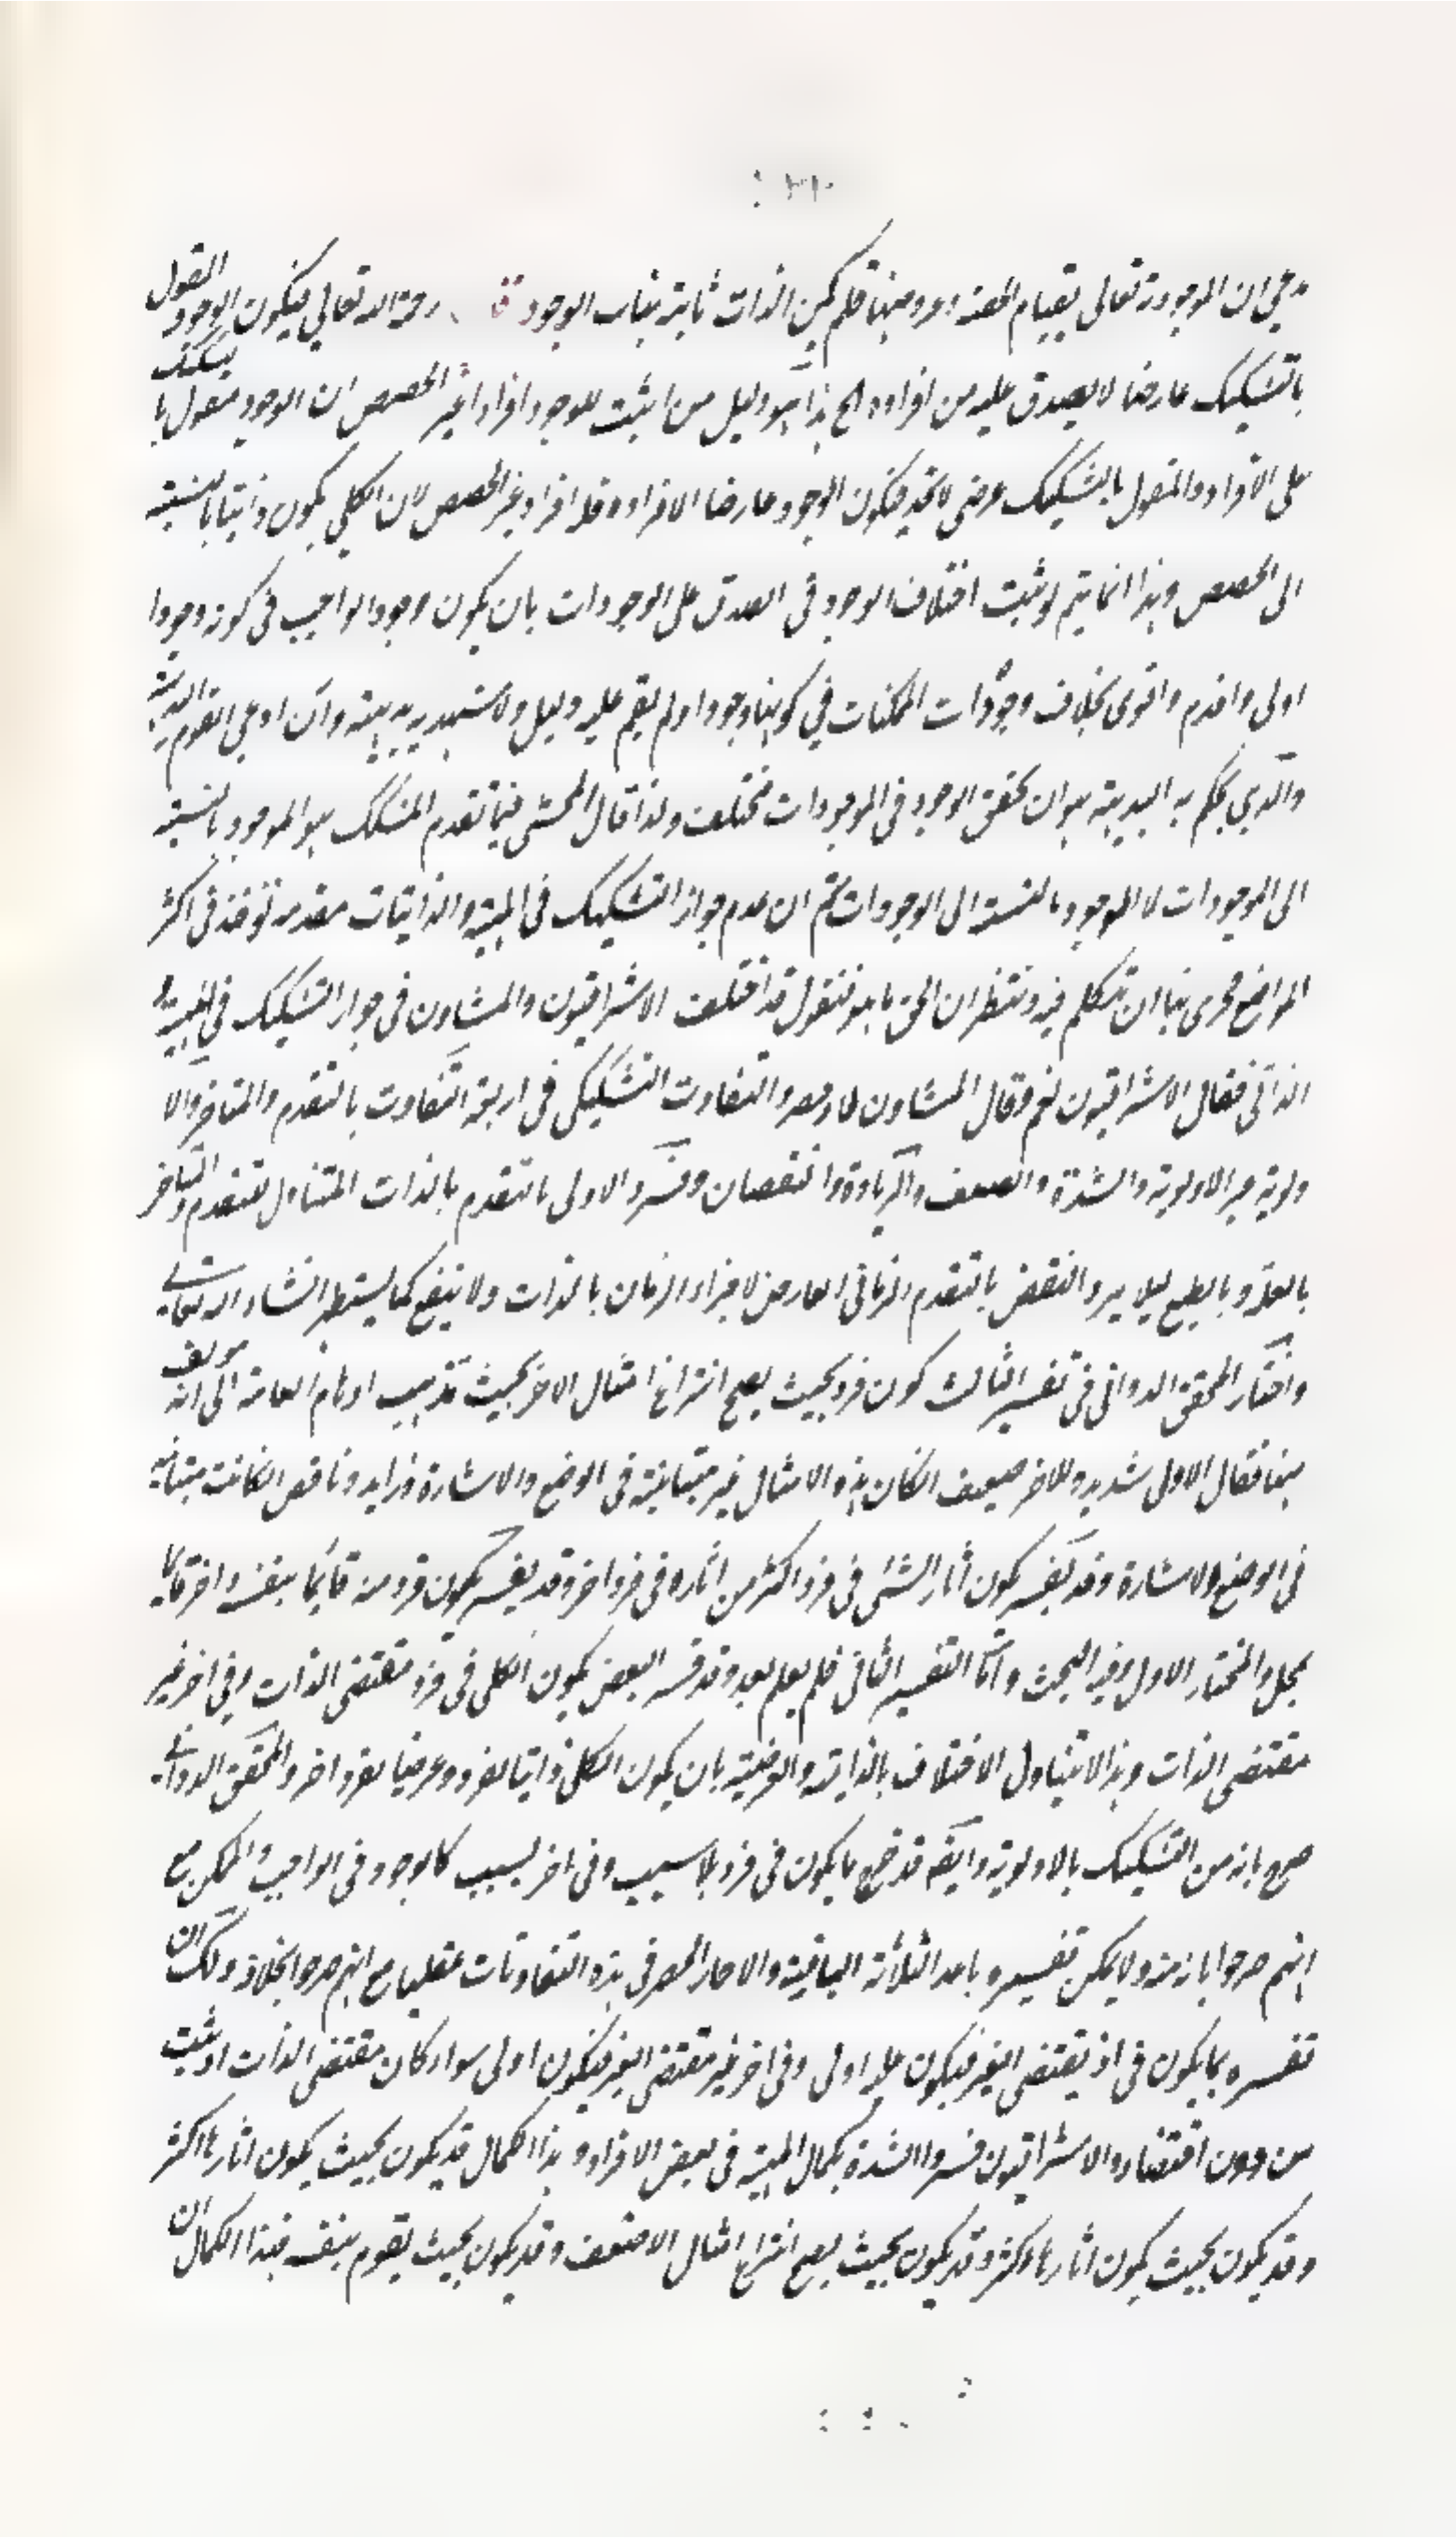 ٣١٠
ان الموجودية تعالى بقيام الحصة فلم يكن الذات ثابتة بناب الوجود رحمة الله تعالى فيكون الوجود القول
بالتشكيك عارضا لا يصدق عليه من افراده الخ هذا هو دليل من اثبت للوجود افرادا غير الحصص ان الوجود مقول با لتشكيك
على الافراد والمقول بالتشكيك عرضي لا تحته فيكون الوجود عارضا لافراده فله افراد غير الحصص لان الكلي يكون ذاتيا بالنسبة
الى الحصص وهذا انما يتم لو ثبت اختلاف الوجود في الصدق على الوجودات بان يكون وجود الواجب في كونه وجودا
اولى واقدم واقوى بخلاف وجودات الممكنات في كونها وجودا ولم يقم عليه دليل ولا تشهد به بديهة وان ادعى القوم البديهة
والذي يحكم به البديهة هو ان تحقق الوجود في الموجودات مختلف ولذا قال المحشي فيما تقدم المشكك هو الموجود بالنسبة
الى الموجودات لا الوجود بالنسبة الى الوجودات ثم ان عدم جواز التشكيك في المهية والذاتيات مقدمة توخذ في اكثر
المواضع فحرى بنا ان نتكلم فيه وننظر ان الحق ما هو فنقول قد اختلف الاشراقيون والمشاون في جواز التشكيك في المهية و
الذاتي فقال الاشراقيون نعم وقال المشاون لا وحصروا التفاوت التشكيكي في اربعة التفاوت بالتقدم والتاخر والا
ولوية وغير الاولوية والشدة والضعف والزيادة والنقصان وفسر الاولى بالتقدم بالذات المتناول للتقدم والتاخر
بالعلة وبالطبع ليلا يرد النقض بالتقدم الزماني العارض لاجزاء الزمان بالذات ولا ينفع كما يستطر انشاء الله تعالى
واختار المحقق الدواني في تفسير الثالث كون فرد بحيث يصح انتزاع امثال الاخر بحيث تذهب اوهام العامة الى انه مولف
منها فقال الاول شديد والاخر ضعيف ان كان هذه الامثال غير متباينة في الوضع والاشارة وزايد وناقص ان كانت متباينة
في الوضع والاشارة وقد يفسر بكون اثار الشئ في فرد اكثر من اثاره في فرد اخر وقد يفسر بكون فرد منه قائما بنفسه واخر قائما
بمحل والمختار الاول وفيه البحث واما التفسير الثاني فلم يعلم بعد وقد فسر البعض بكون الكلي في فرد مقتضى الذات وفي اخر غير
مقتضى الذات وهذا لا يتناول الاختلاف بالذاتية والعرضية بان يكون الكلي ذاتيا لفرد وعرضيا لفرد اخر والمحقق الدواني
صرح بانه من التشكيك بالاولوية وايضا قد خرج ما يكون في فرد بلا سبب وفي اخر بسبب كالوجود في الواجب والممكن مع
انهم صرحوا بانه منه ولا يمكن تفسيره باحد الثلاثة الباقية والا صار الحصر في هذه التفاوتات عقليا مع انهم صرحوا بخلافه ولك ان
تفسره بما يكون في فرد يقتضى الغير فيكون عليه اولى وفي اخر غير مقتضى الغير فيكون اولى سواء كان مقتضى الذات او يثبت
من دون اقتضاء والاشراقيون فسروا الشدة بكمال المهية في بعض الافراد وهذا الكمال قد يكون بحيث يكون اثارها اكثر
وقد يكون بحيث يكون اثارها اكثر وقد يكون بحيث يصح انتزاع امثال الاضعف وقد يكون بحيث يقوم بنفسه فهذا الكمال ان